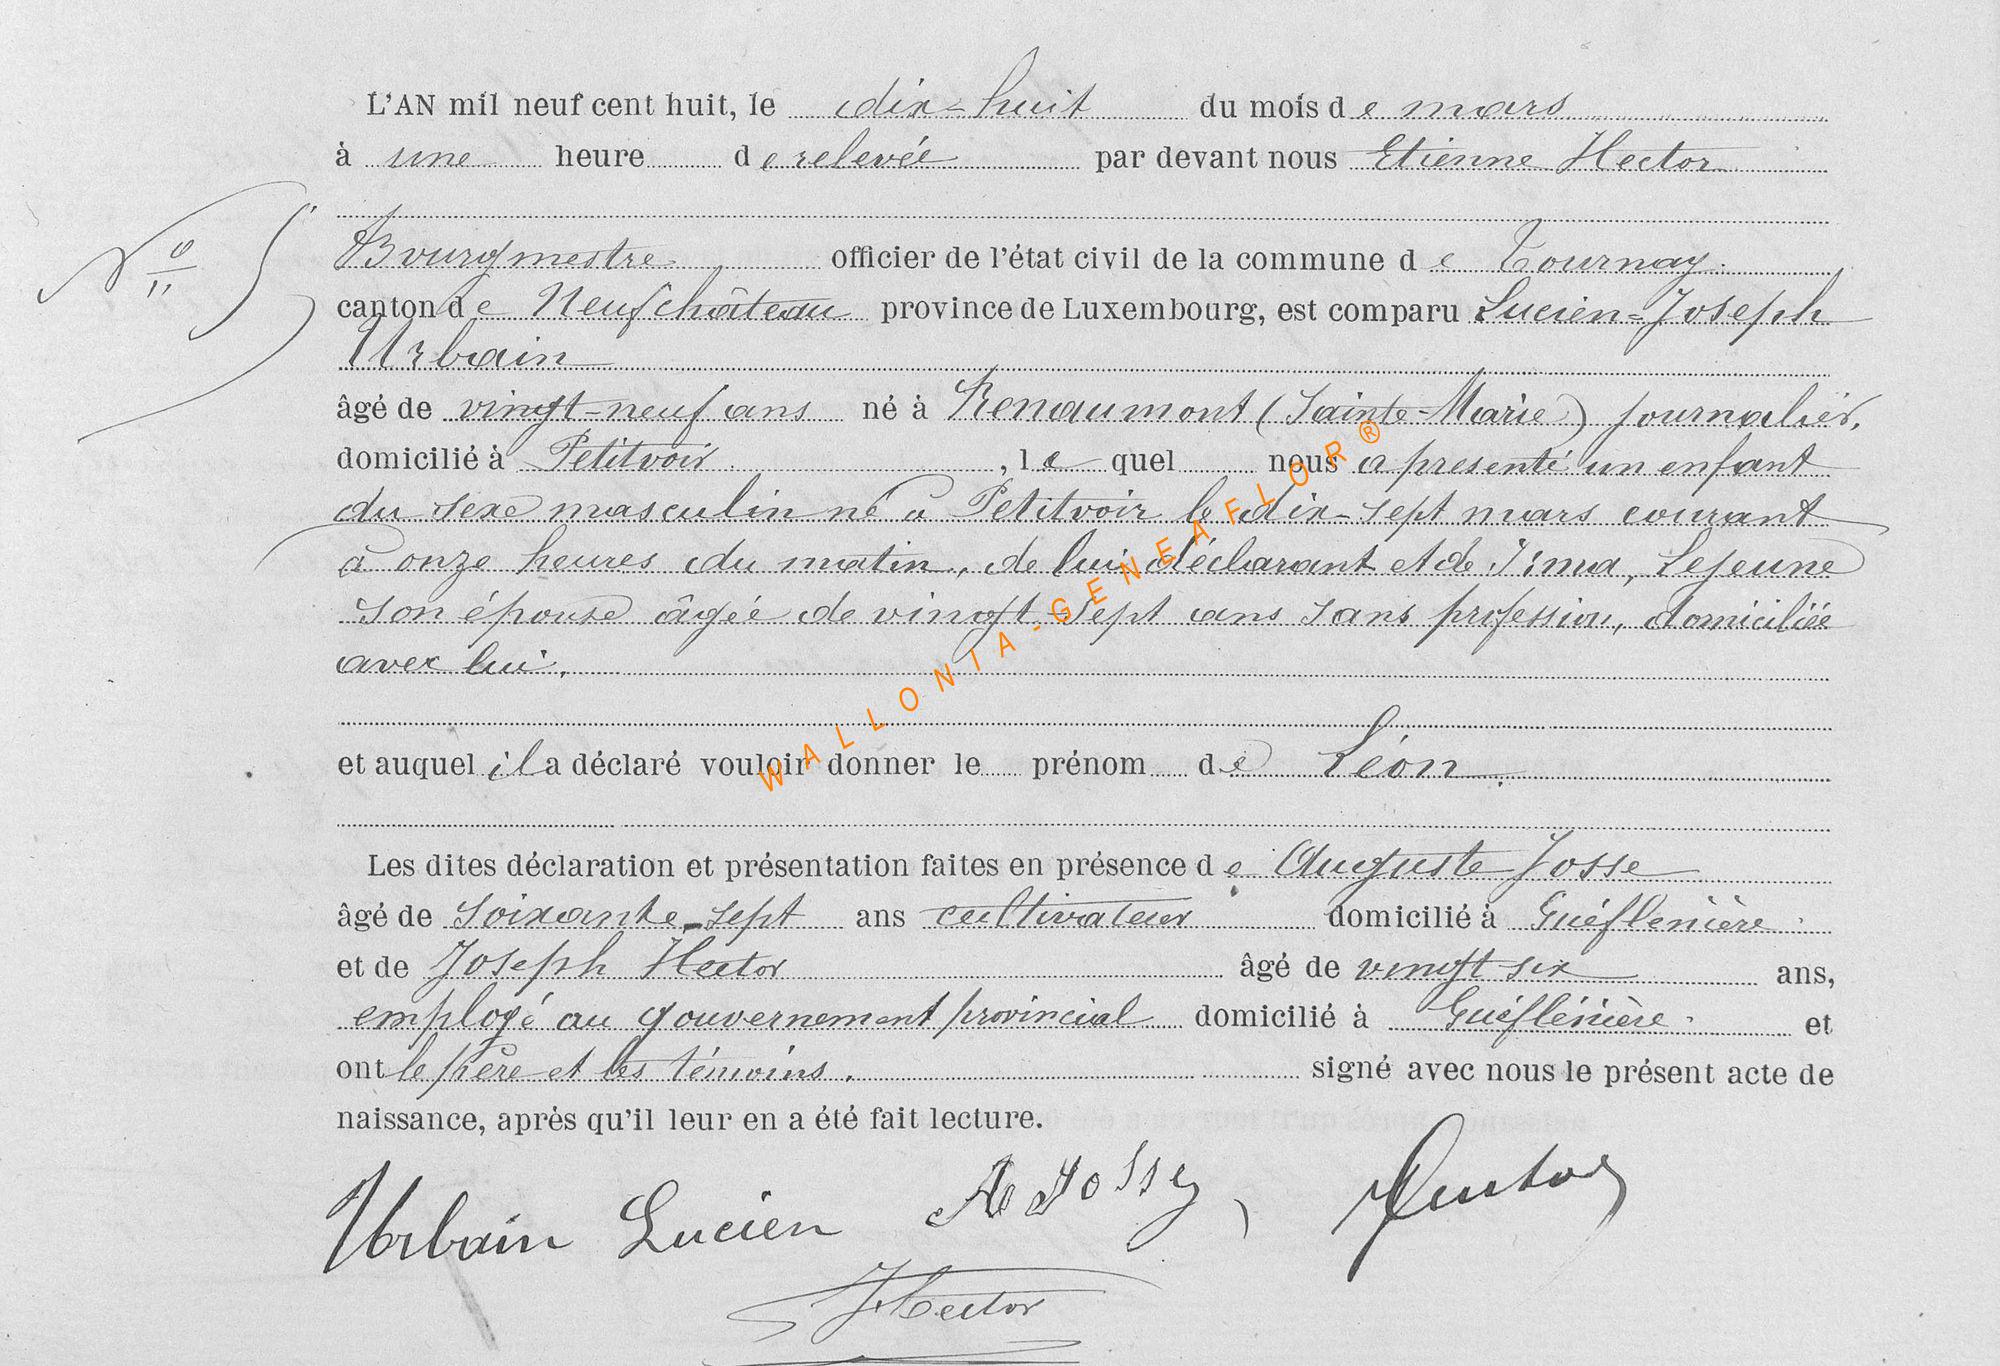 L'AN mil neuf cent huit, le dix-huit du mois de mars
à une heure de relevée par devant nous Etienne Hector
N° 5
Bourgmestre officier de l'état civil de la commune de Tournay.
canton de Neufchâteau province de Luxembourg, est comparu Lucien-Joseph
Urbain
âgé de vingt-neuf ans né à Renaumont (Sainte-Marie) journalier,
domicilié à Petitvoir , le quel nous a presenté un enfant
du sexe masculin né à Petitvoir le dix-sept mars courant
à onze heures du matin, de lui déclarant et de Irma, Lejeune
son épouse âgée de vingt-sept ans sans profession, domiciliée
avec lui.
et auquel il a déclaré vouloir donner le prénom de Léon.
Les dites déclaration et présentation faites en présence de Auguste Josse
âgé de soixante-sept ans cultivateur domicilié à Guéflenière
et de Joseph Hector âgé de vingt six ans,
employé au gouvernement provincial domicilié à Guéflénière. et
ont le père et les témoins. signé avec nous le présent acte de
naissance, après qu'il leur en a été fait lecture.
Urbain Lucien A Josse
JHector
WALLONIA-GENEAFLOR®